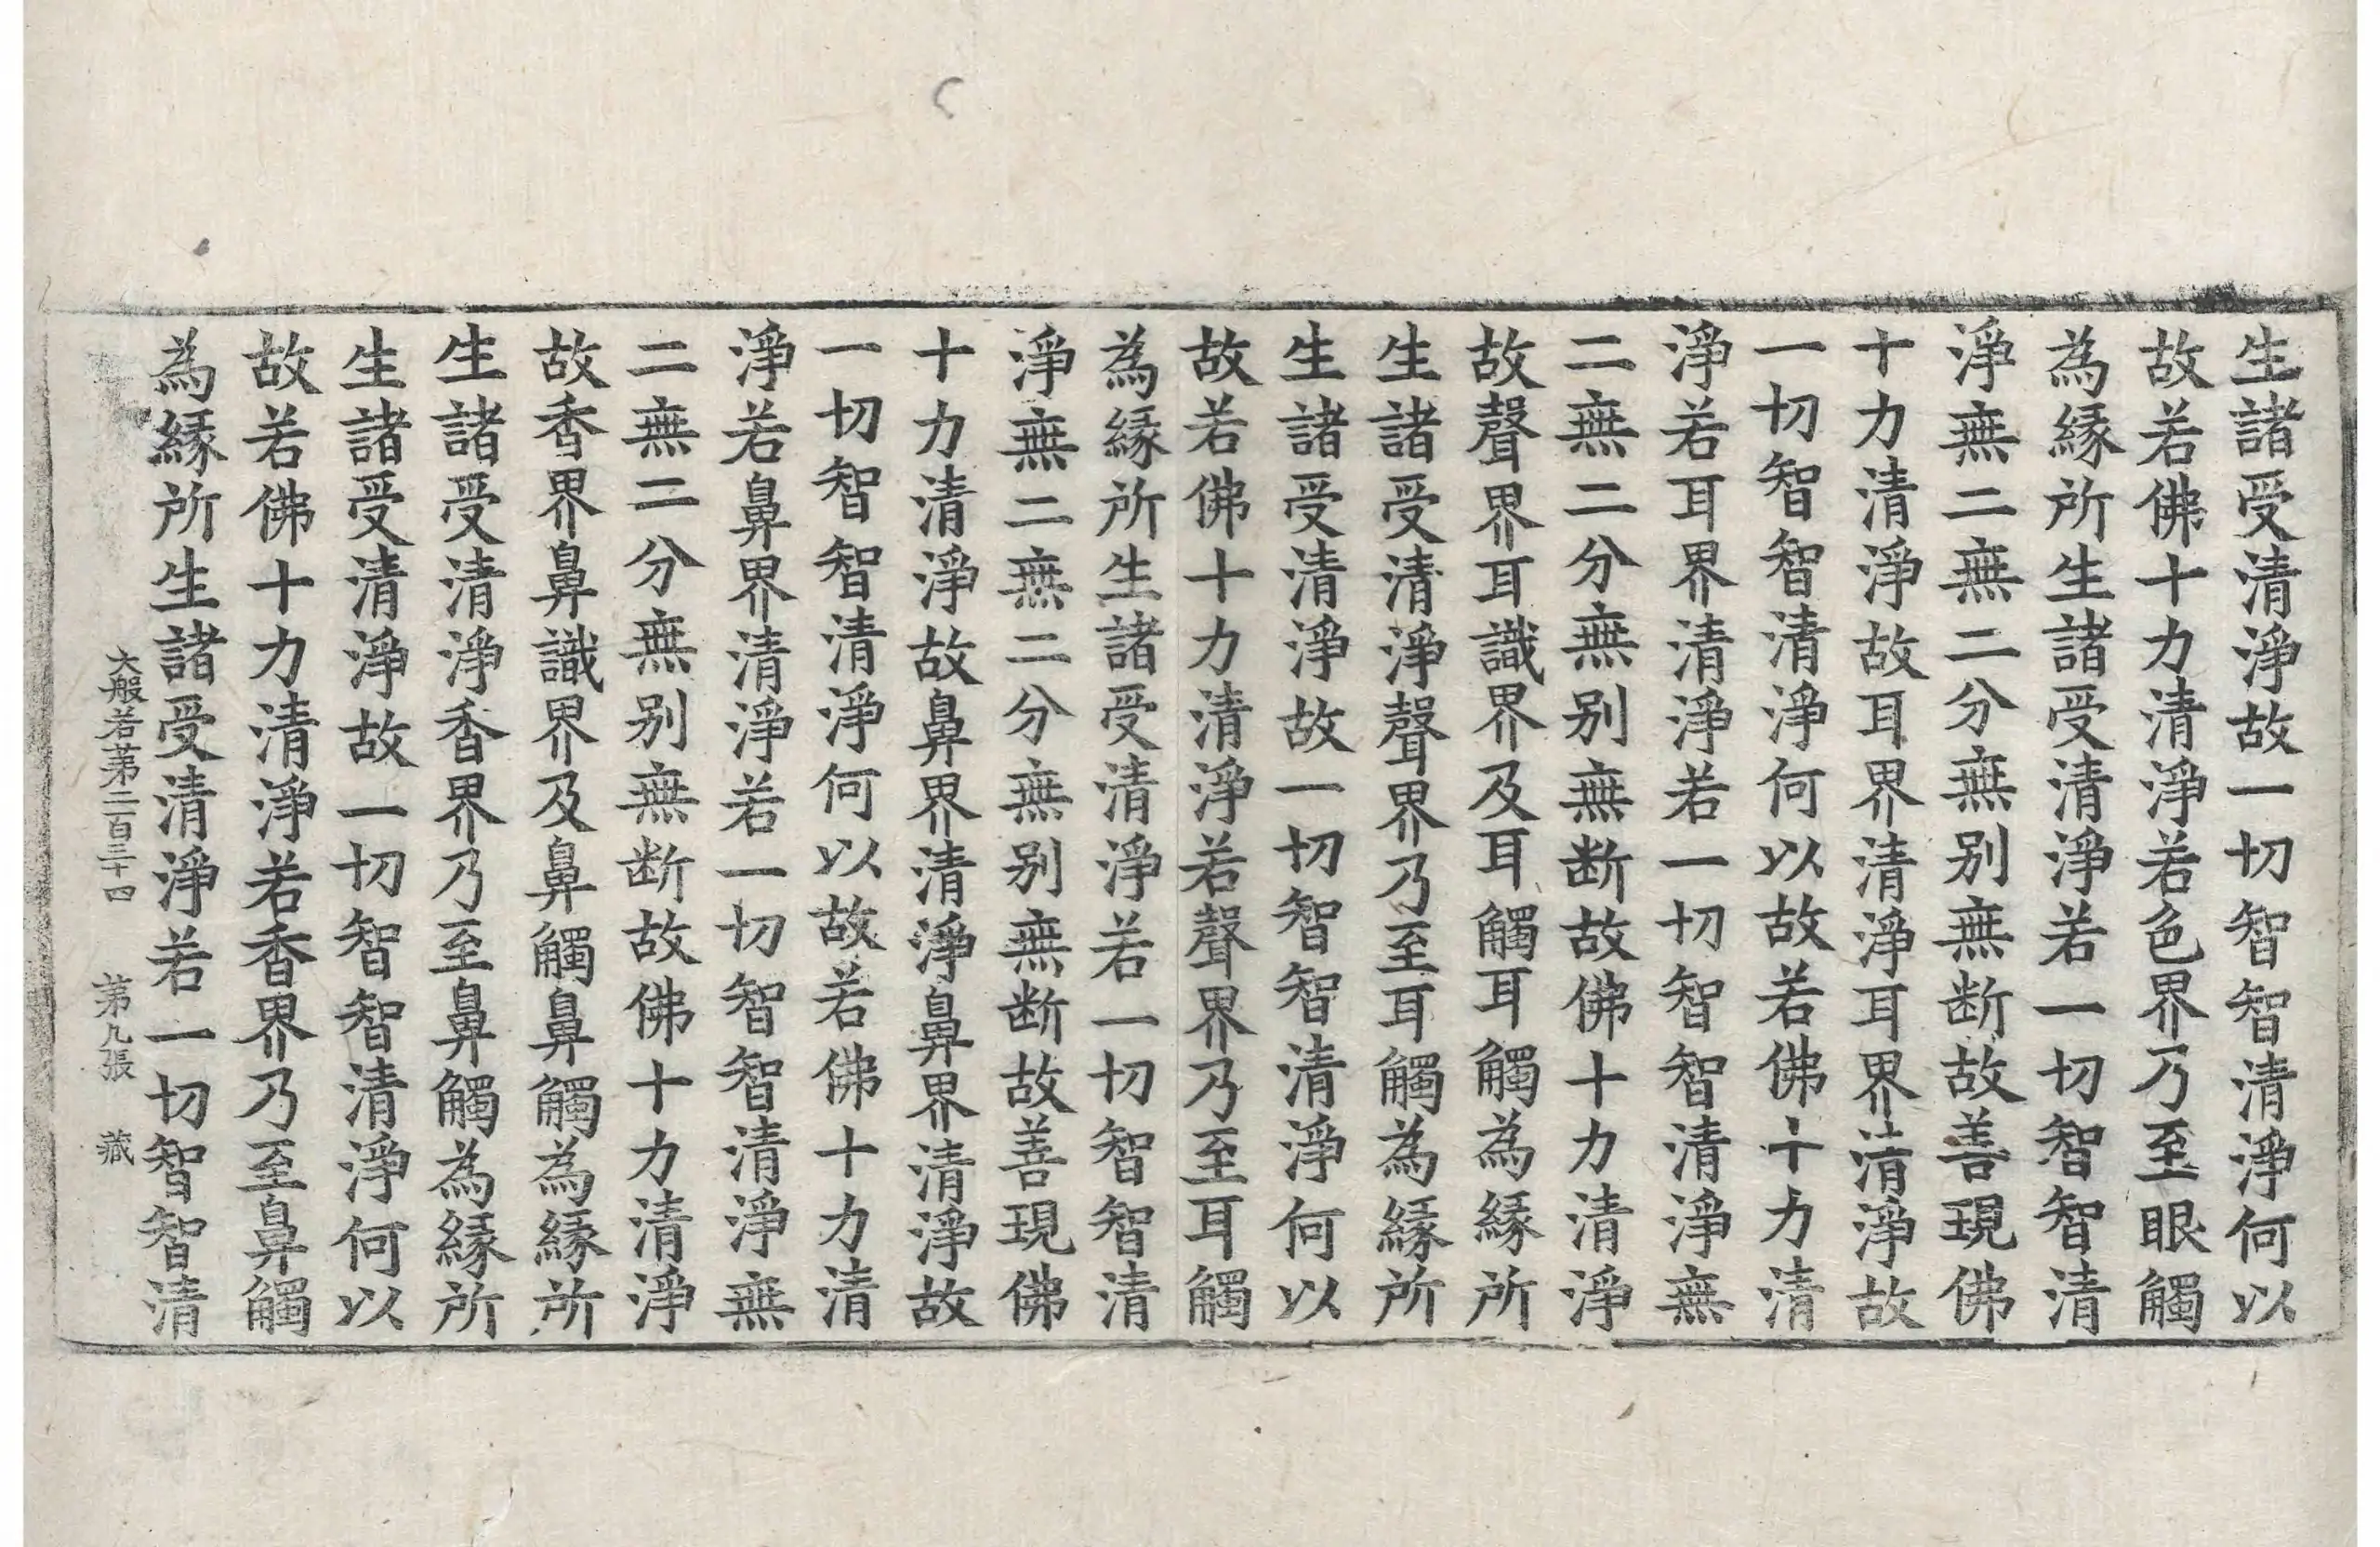 生諸受清淨故一切智智清淨何以
故若佛十力清淨若色界乃至眼觸
為緣所生諸受清淨若一切智智清
淨無二無二分無别無断故善現佛
十力清淨故耳界清淨耳界清淨故
一切智智清淨何以故若佛十力清
淨若耳界清淨若一切智智清淨無
二無二分無别無断故佛十力清淨
故聲界耳識界及耳觸耳觸為緣所
生諸受清淨聲界乃至耳觸為緣所
生諸受清淨故一切智智清淨何以
故若佛十力清淨若聲界乃至耳觸
為緣所生諸受清淨若一切智智清
淨無二無二分無别無断故善現佛
十力清淨故鼻界清淨鼻界清淨故
一切智智清淨何以故若佛十力清
淨若鼻界清淨若一切智智清淨無
二無二分無别無断故佛十力清淨
故香界鼻識界及鼻觸鼻觸為緣所
生諸受清淨香界乃至鼻觸為緣所
生諸受清淨故一切智智清淨何以
故若佛十力清淨若香界乃至鼻觸
為緣所生諸受清淨若一切智智清
大般若苐二百三十四 苐九張 蔵